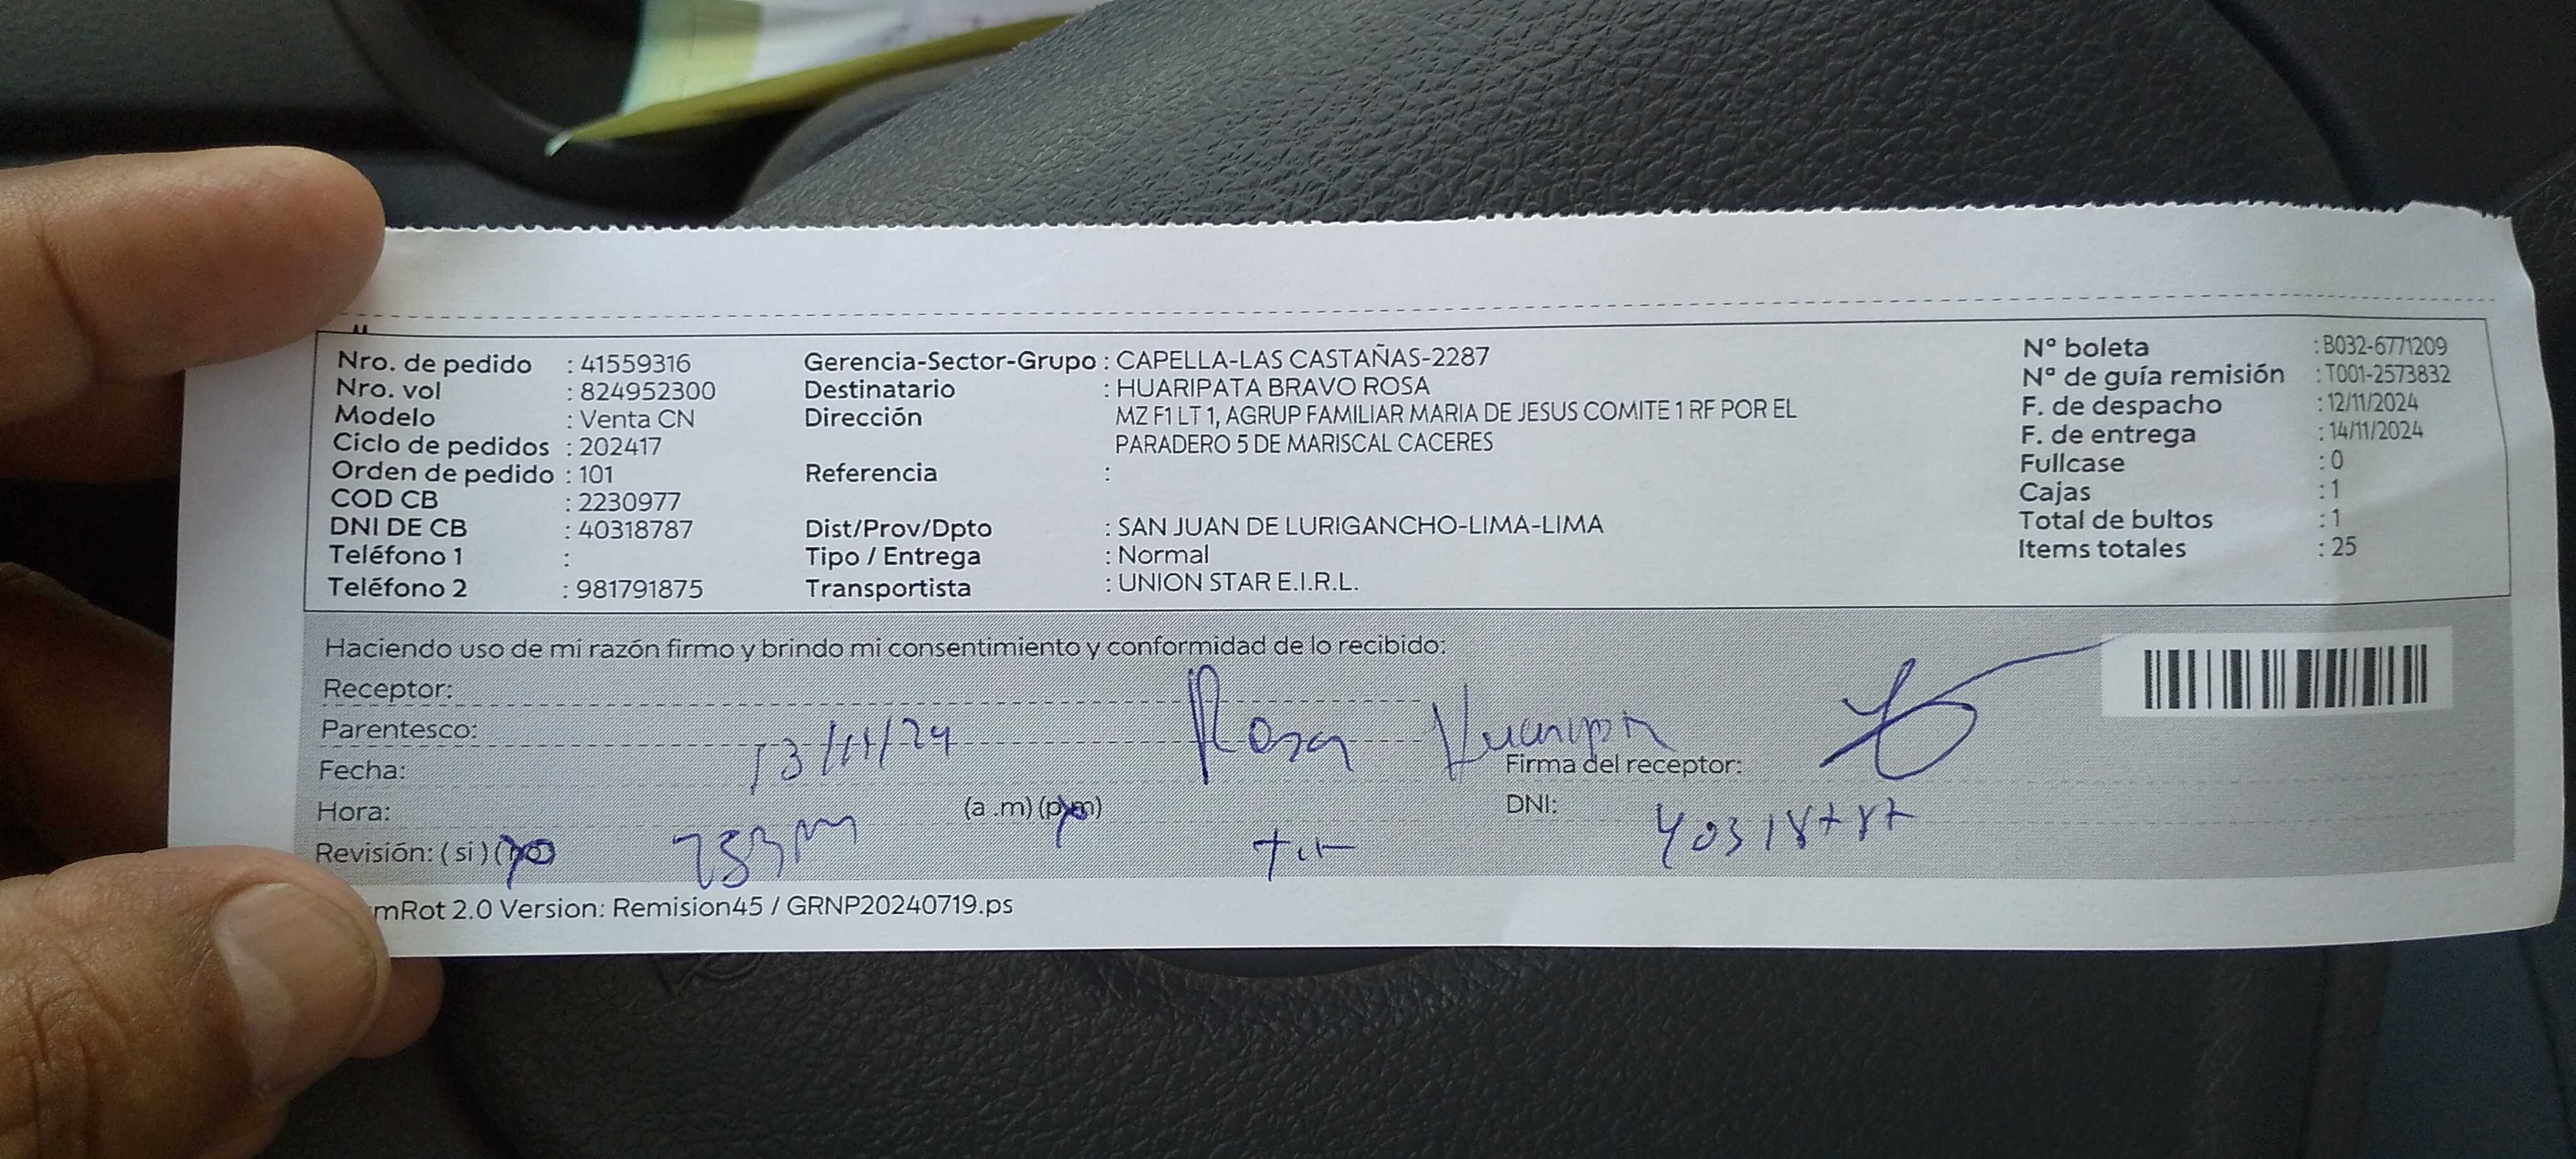 Nro. de pedido : 41559316
Nro. vol : 824952300
Modelo : Venta CN
Ciclo de pedidos : 202417
Orden de pedido : 101
COD CB : 2230977
DNI DE CB : 40318787
Teléfono 1 :
Teléfono 2 : 981791875
Gerencia-Sector-Grupo : CAPELLA-LAS CASTAÑAS-2287
Destinatario : HUARIPATA BRAVO ROSA
Dirección MZ F1 LT 1, AGRUP FAMILIAR MARIA DE JESUS COMITE 1 RF POR EL
PARADERO 5 DE MARISCAL CACERES
Referencia :
Dist/Prov/Dpto : SAN JUAN DE LURIGANCHO-LIMA-LIMA
Tipo / Entrega : Normal
Transportista : UNION STAR E.I.R.L.
Nº boleta : B032-6771209
Nº de guía remisión : T001-2573832
F. de despacho : 12/11/2024
F. de entrega : 14/11/2024
Fullcase : 0
Cajas : 1
Total de bultos : 1
Items totales : 25
Haciendo uso de mi razón firmo y brindo mi consentimiento y conformidad de lo recibido:
Receptor: Rosa
Parentesco:
Fecha: 13/11/24
Firma del receptor:
Hora: (a .m) (p.m)
DNI: 40318787
Revisión: ( si ) (no)
mRot 2.0 Version: Remision45 / GRNP20240719.ps